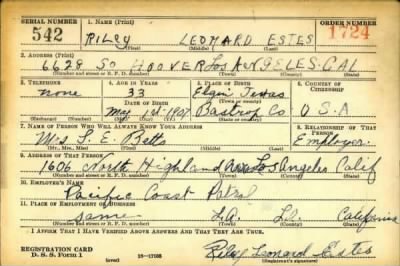 SERIAL NUMBER
1. NAME (Print)
ORDER NUMBER
542
RILEY LEONARD ESTES
1724
(First) (Middle) (Last)
2. ADDRESS (Print)
6628 SO HOOVER Los ANGELES. CAL
(Number and street or R. F. D. number) (Town) (County) (State)
3. TELEPHONE
4. AGE IN YEARS
5. PLACE OF BIRTH
6. COUNTRY OF CITIZENSHIP
none
33
Elgin Texas
(Town or county)
DATE OF BIRTH
May 1907
Bastrop Co.
U S A
(Exchange) (Number)
(Mo.) (Day) (Yr.)
(State or country)
7. NAME OF PERSON WHO WILL ALWAYS KNOW YOUR ADDRESS
8. RELATIONSHIP OF THAT PERSON
Mrs E. Betts
Employer.
(Mr., Mrs., Miss) (First) (Middle) (Last)
9. ADDRESS OF THAT PERSON
1606 North Highland Los Angeles Calif
(Number and street or R. F. D. number) (Town) (County) (State)
10. EMPLOYER'S NAME
Pacific Coast Patrol
11. PLACE OF EMPLOYMENT OR BUSINESS
same L.A. L.A. California
(Number and street or R. F. D. number) (Town) (County) (State)
I AFFIRM THAT I HAVE VERIFIED ABOVE ANSWERS AND THAT THEY ARE TRUE.
REGISTRATION CARD
D. S. S. Form 1
(over)
16—17105
Riley Leonard Estes
(Registrant's signature)